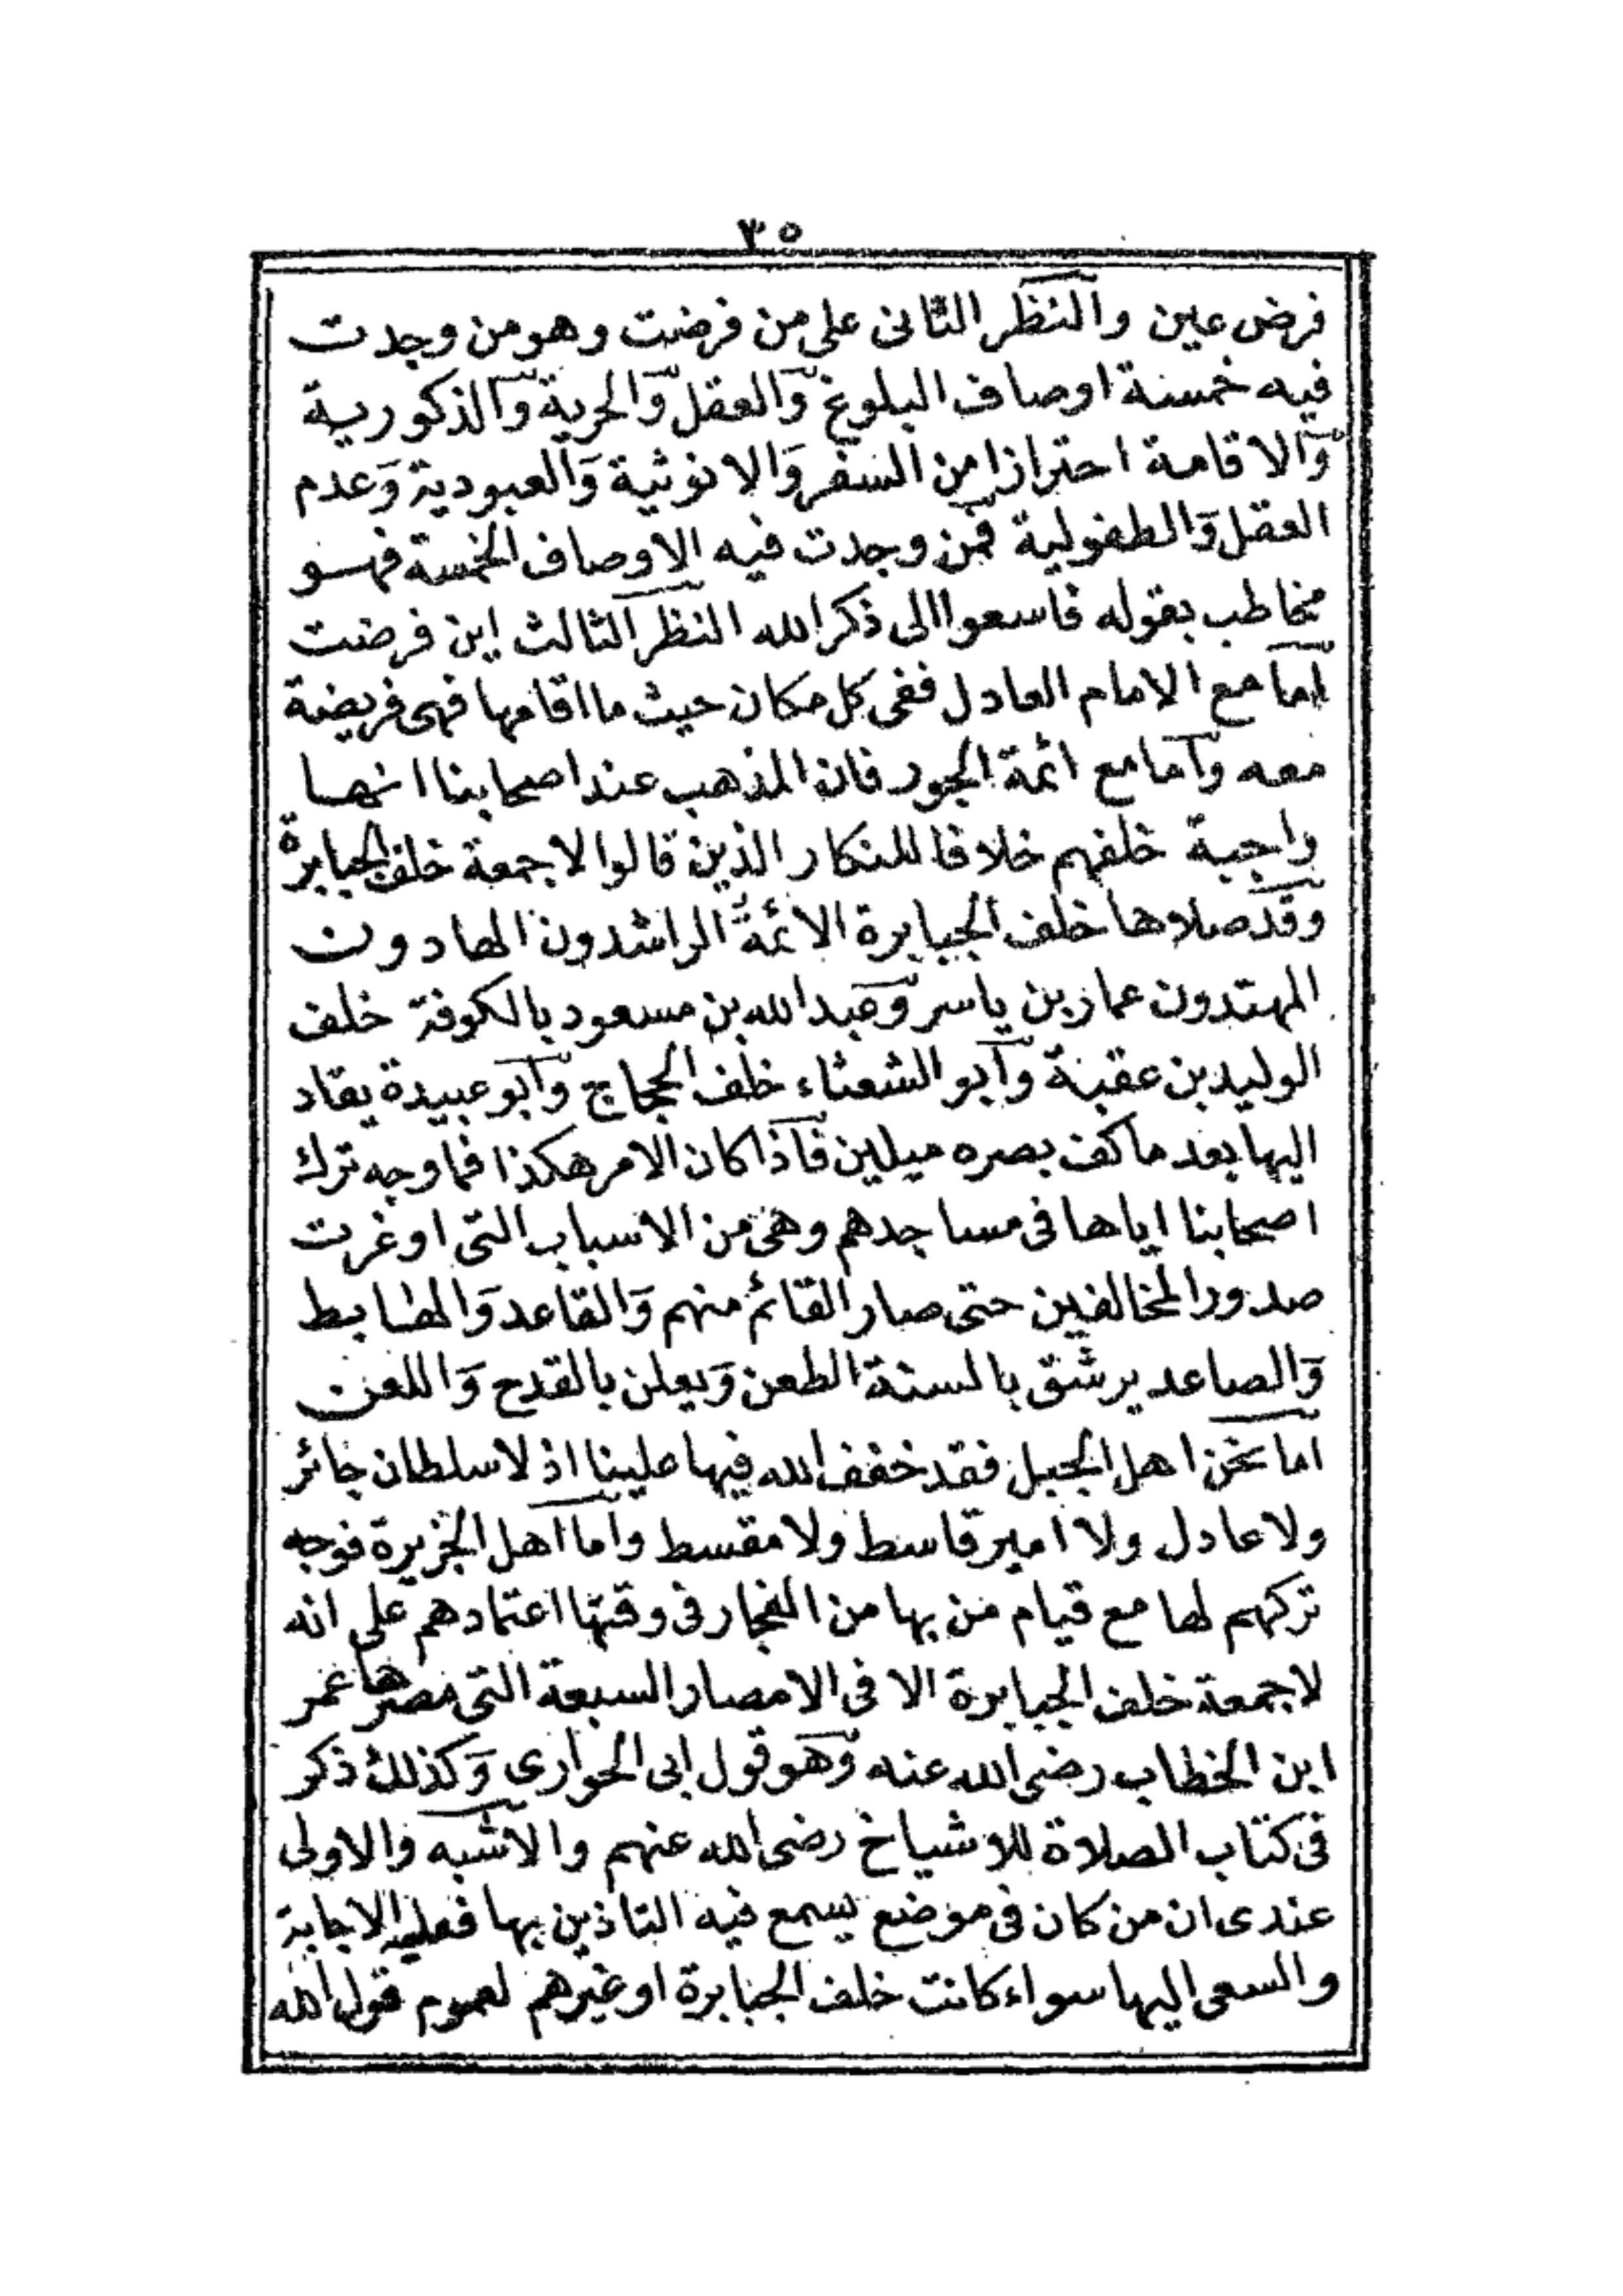 ٣٥
فرض عين والنظر الثانى على من فرضت وهو من وجدت
فيه خمسة اوصاف البلوغ والعقل والحرية والذكورية
والاقامة احترازا من السفر والانوثية والعبودية وعدم
العقل والطفولية فمن وجدت فيه الاوصاف الخمسة فهو
مخاطب بقوله فاسعوا الى ذكر الله النظر الثالث اين فرضت
اما مع الامام العادل ففى كل مكان حيث ما اقامها فهى فريضة
معه واما مع ائمة الجور فان المذهب عند اصحابنا انها
واجبة خلفهم خلافا للنكار الذين قالوا لا جمعة خلف الجبابرة
وقد صلاها خلف الجبابرة الائمة الراشدون الهادون
المهتدون عمار بن ياسر وعبد الله بن مسعود بالكوفة خلف
الوليد بن عقبة وابو الشعثاء خلف الحجاج وابو عبيدة يقاد
اليها بعد ما كف بصره ميلين فاذا كان الامر هكذا فما وجه ترك
اصحابنا اياها فى مساجدهم وهى من الاسباب التى اوغرت
صدور المخالفين حتى صار القائم منهم والقاعد والهابط
والصاعد يرشق بالسنة الطعن ويعلن بالقدح واللعن
اما نحن اهل الجبل فقد خفف الله فيها علينا اذ لا سلطان جائر
ولا عادل ولا امير قاسط ولا مقسط واما اهل الجزيرة فوجه
تركهم لها مع قيام من بها من الفجار فى وقتها اعتمادهم على انه
لا جمعة خلف الجبابرة الا فى الامصار السبعة التى مصرها عمر
ابن الخطاب رضى الله عنه وهو قول ابى الحوارى وكذلك ذكر
فى كتاب الصلاة للاشياخ رضى الله عنهم والاشبه والاولى
عندى ان من كان فى موضع يسمع فيه التاذين بها فعليه الاجابة
والسعى اليها سواء كانت خلف الجبابرة او غيرهم لعموم قول الله